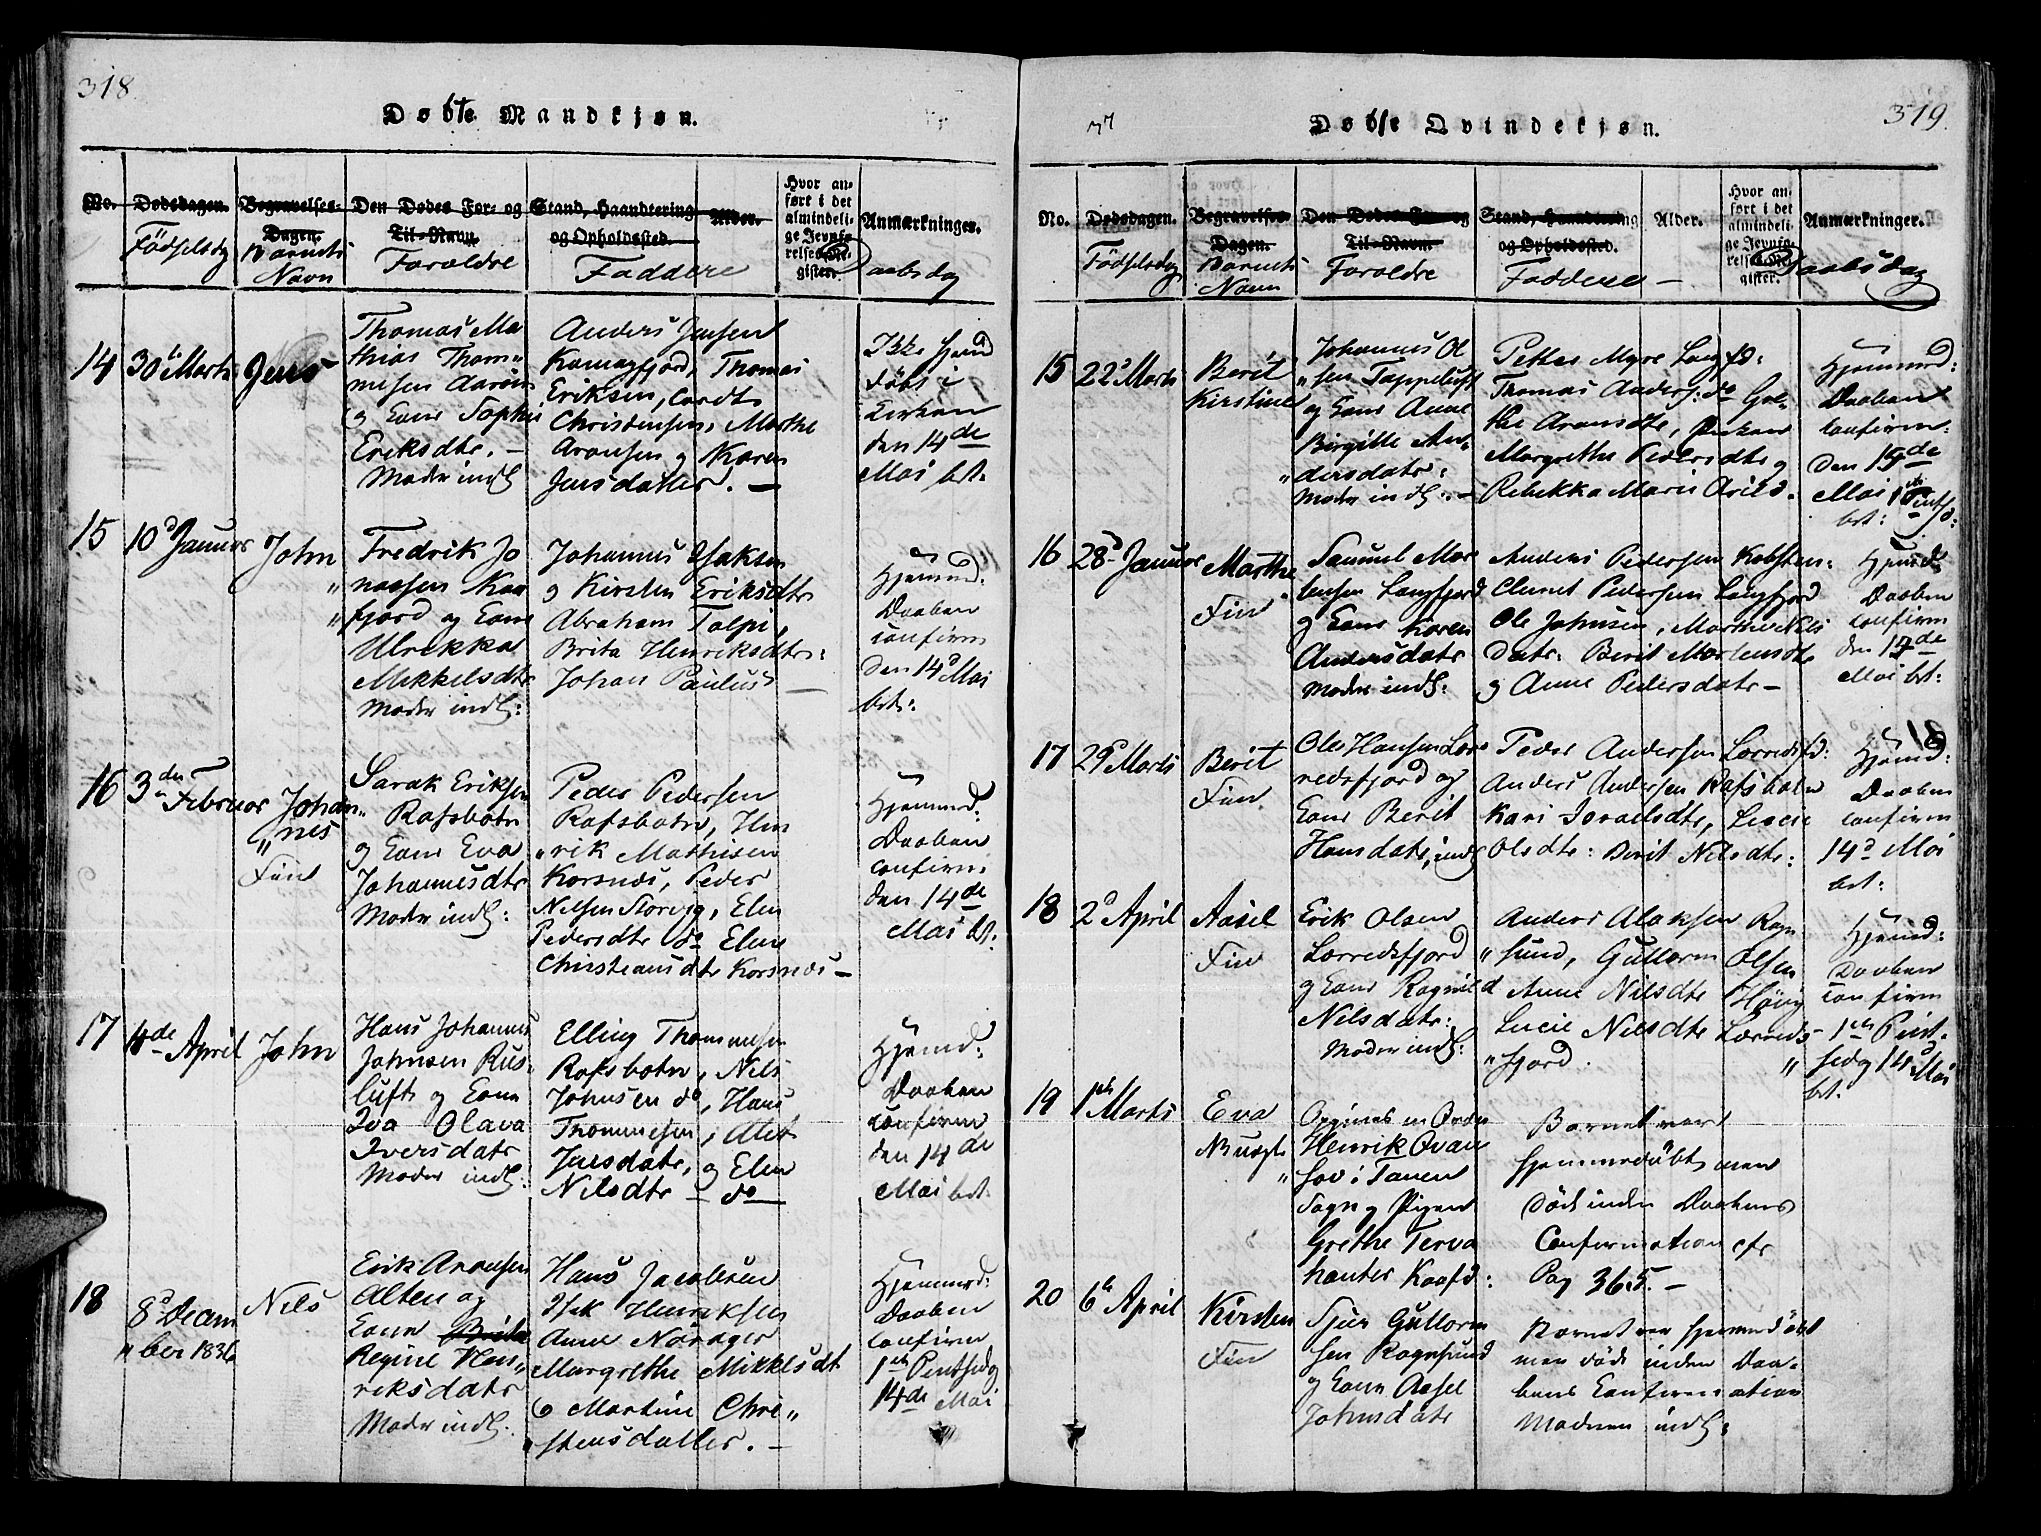 318.
Døbte Mandkjøn.
No.
Dødsdagen.
Begravelses-
Dagen.
Den Dødes For- og
Til-Navn.
Stand, Haandtering
og Opholdssted.
Alder.
Hvor an-
ført i det
almindeli-
ge Jevnfø-
relses-Re-
gister.
Anmærkninger.
Födselsdg
Barnets
Navn
Foroldre
Faddere
Daabsdg
14
30te Marts
Jens
Thomas Ma
thias Thom„
mesen Aarøn
og Kone Sophie
Eriksdtr. –
Moder indl
Anders Jensen
Kamagfjord, Thomas
Eriksen, Cordt
Christensen, Marthe
Aronsen og Karen
Jensdatter. –
Ikke hjemd
døbt i
Kirken
den 14de
Mai bet.
15
10d Januar
John
Fredrik Jo
„nassen Kaa
„fjord og Kone
Ulrikka
Mikkelsdtr
Moder indl:
Johannes Isaksen
og Kirsten Eriksdtr
Abraham Talpi,
Brita Henriksdtr:
Johan Paulus –
Hjemmd:
Daaben
confirm
den 14d Mai
bet:
16
3den Februar
Johan„
„nes
Fin
Sarak Eriksen
Rafsbotn
og Kone Eva
Johannesdtr
Moder indl:
Peder Pedersen
Rafsbotn, Hen
„rik Mathisen
Korsnes, Peder
Nilsen Storvig, Elen
Pedersdtr do Elen
Christiansdtr Korsnes –
Hjemmd:
Daaben
confirm:
den 14de
Mai bt.
17
4de April
John
Hans Johannes
Johnsen Rus„
luft og Kone
Iva Olava
Iversdatr
Moder indl:
Elling Thommesen
Rafsbotn, Nils
Johnsen do, Hans
Thommesen, Alet
Jensdatr, og Elen
Nilsdtr – do
Hjemd:
Daaben
confirm
den 14de
Mai bet.
18
8d Decem
„ber 1836
Nils
Erik Aronsen
Alten og
Kone Brita
Regine Hen„
riksdatr
Moder indl.
Hans Jacobsen
Isak Henriksen
Anne
Margrethe Mikkelsdt
og Martine Chri„
„stensdatter. –
Hjemmd:
Daaben
confirm
1ste Pintsedg
14de Mai
319.
Døbte Qvindekjøn.
No.
Dødsdagen.
Begravelses-
Dagen.
Den Dødes For- og
Til-Navn.
Stand, Haandtering
og Opholdssted.
Alder.
Hvor an-
ført i det
almindeli-
ge Jevnfø-
relses-Re-
gister.
Anmærkninger.
Födselsdg
Barnets
Navn
Foroldre
Faddere –
Daabsdag
15
22d Marts
Berit
Kirstine
Johannes Ol
„sen Tappeluft
og Kone Anne
Birgitte An„
„dersdatr:
Moder indl: –
Petter Myre Langfd:
Thomas Anders: do Gre„
the Aronsdtr, Pigen
Margrethe Pedersdtr og
Rebekka Marie Arild.
Hjemmd:
Daaben
confirm:
den 14de
Mai 1ste Pintsd:
bet:
16
28d Januar
Marthe
Fin
Samuel Mor
„tensen Langfjord
og Kone Karen
Andersdatr
Moder indl:
Anders Pedersen Kobften:
Clemet Pedersen Langfjord
Ole Johnsen, Marthe Nils
Datr: Berit Mortensdtr
og Anne Pedersdatr –
Hjemd:
Daaben
confirm
den 14de
Mai bet:
17
29d Marts
Berit
Fin.
Ole Hansen Lær
redsfjord og
Kone Berit
Hansdatr, indl
Peder Andersen Lerredsfd:
Anders Andersen Rafsbotn
Kari Israelsdtr, Lucie
Olsdtr: Berit Nilsdtr:
18
Hjemd:
Daaben
confirm
14d Mai
bet:
18
2d April
Aasel
Fin
Erik Olsen
Lerredsfjord
og Kone Ragnild
Nilsdatr:
Moder indl:
Anders Alaksen Rogn
„sund, Guttorm Olsen
Anne Nilsdtr Høvig
Lucie Nilsdtr Lerreds„
„fjord.
Hjemd:
Daaben
confirm
1ste Pint„
„sedg 14d Mai
bt.
19
1ste Marts
Eva
Nuægte
Opgives en Qvæn
Henrik Qvan
hov i Tanen
Sogn og Pigen
Grethe Terva
hanter Kaafd:
Barnet var
hjemmedøbt men
døde inden Daabens
Confirmation cfr
Pag 365. –
20
6te April
Kirsten
Fin
Sjur Guttorm
sen Rognsund
og Kone Aasel
Johnsdatr
Barnet var hjemmedøbt
men døde inden Daa„
bens Confirmation
Moderen indl: